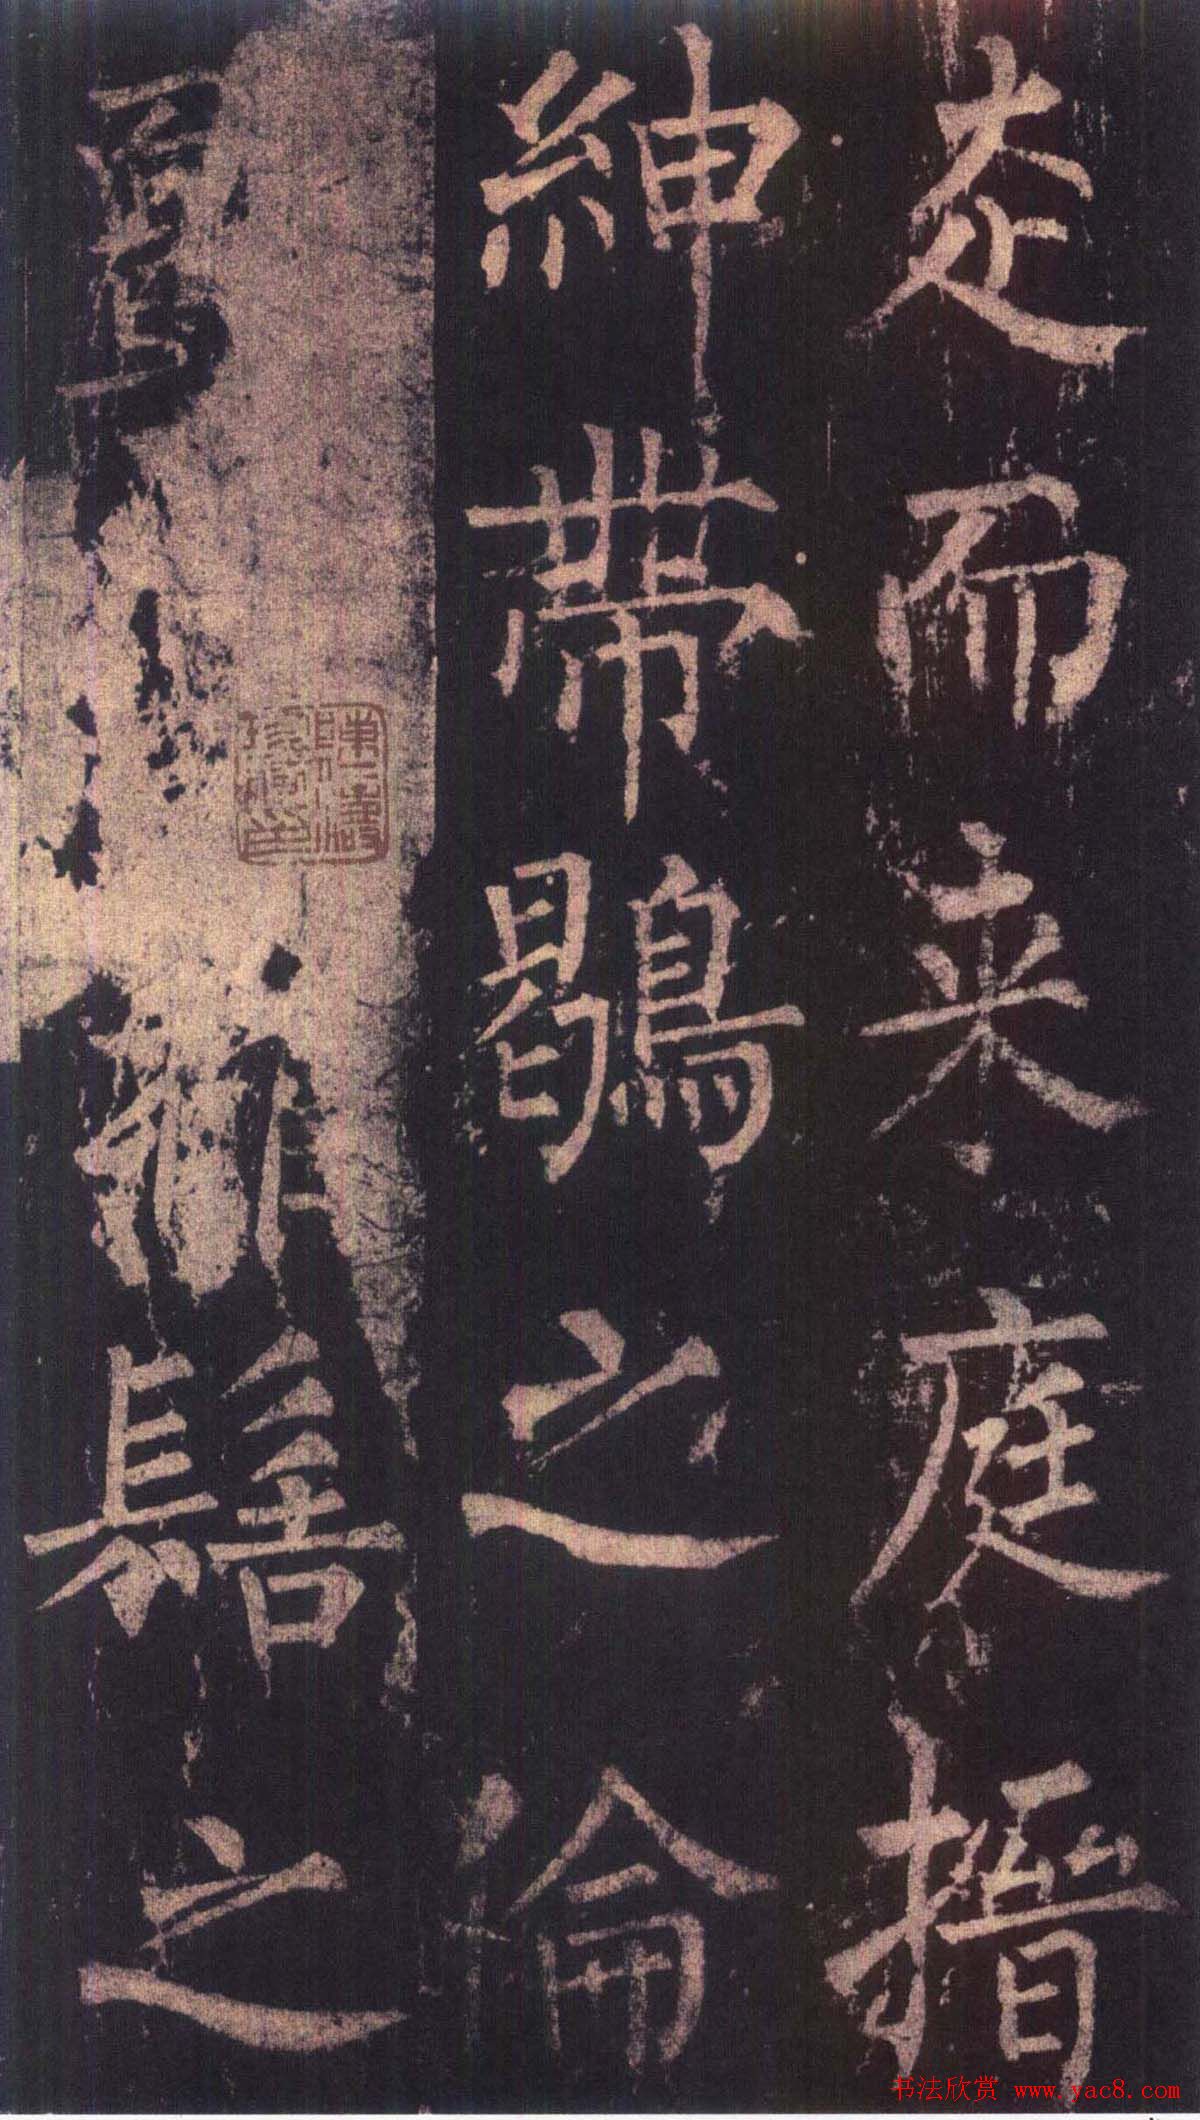 走而来庭搢
紳帶鶡之倫
髻之
书法欣赏 www.yac8.com